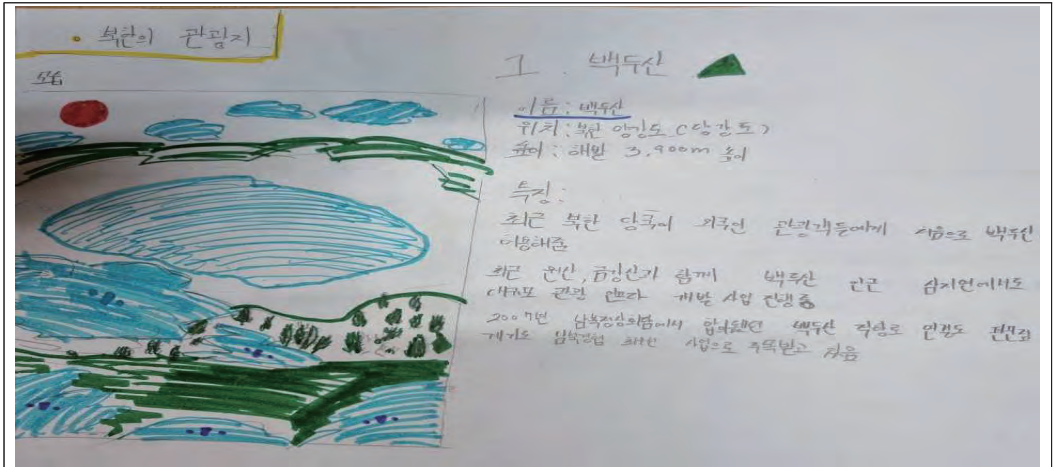 • 북한의 관광지
모습
1. 백두산
이름: 백두산
위치: 북한 양강도 (량강도)
높이: 해발 3,900m 높이
특징:
최근 북한 당국이 외국인 관광객들에게 처음으로 백두산
최근 원산, 금강산과 함께 백두산 인근 삼지연에서도
대규모 관광 인프라 개발 사업 진행중
2007년 남북정상회담에서 합의됐던 백두산 직항로 연결도
남북경협 사업으로 주목받고 있음